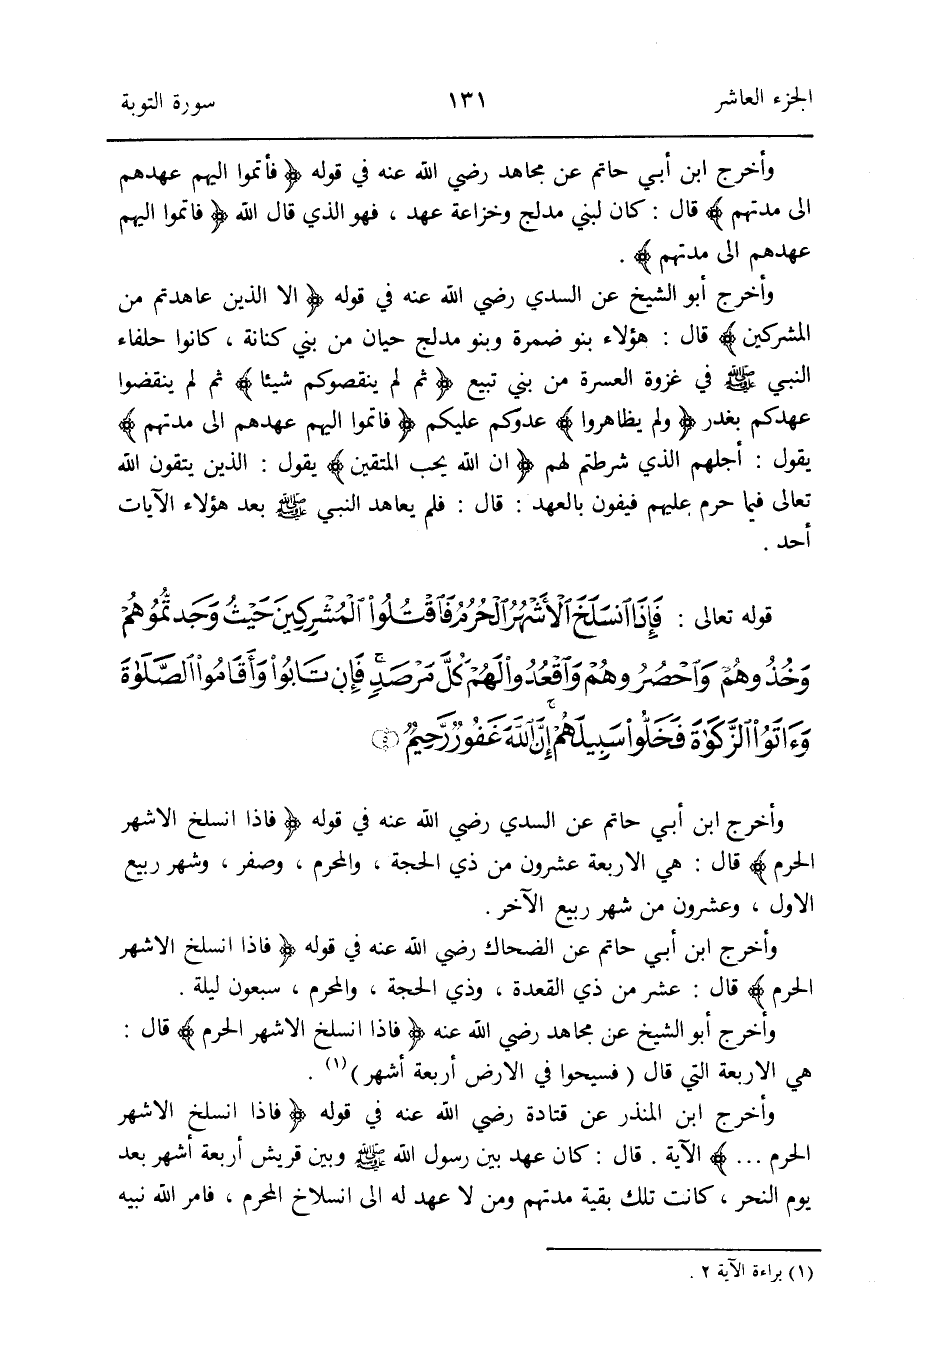 الجزء العاشر ١٣١ سورة التوبة
وأخرج ابن أبي حاتم عن مجاهد رضي الله عنه في قوله ﴿ فأتموا اليهم عهدهم
الى مدتهم ﴾ قال : كان لبني مدلج وخزاعة عهد ، فهو الذي قال الله ﴿ فاتموا اليهم
عهدهم الى مدتهم ﴾ .
وأخرج أبو الشيخ عن السدي رضي الله عنه في قوله ﴿ الا الذين عاهدتم من
المشركين ﴾ قال : هؤلاء بنو ضمرة وبنو مدلج حيان من بني كنانة ، كانوا حلفاء
النبي ﷺ في غزوة العسرة من بني تبيع ﴿ ثم لم ينقصوكم شيئا ﴾ ثم لم ينقضوا
عهدكم بغدر ﴿ ولم يظاهروا ﴾ عدوّكم عليكم ﴿ فاتموا اليهم عهدهم الى مدتهم ﴾
يقول : أجلهم الذي شرطتم لهم ﴿ ان الله يحب المتقين ﴾ يقول : الذين يتقون الله
تعالى فيما حرم عليهم فيفون بالعهد : قال : فلم يعاهد النبي ﷺ بعد هؤلاء الآيات
أحد .
قوله تعالى : فَإِذَا ٱنسَلَخَ ٱلْأَشْهُرُ ٱلْحُرُمُ فَٱقْتُلُوا۟ ٱلْمُشْرِكِينَ حَيْثُ وَجَدتُّمُوهُمْ
وَخُذُوهُمْ وَٱحْصُرُوهُمْ وَٱقْعُدُوا۟ لَهُمْ كُلَّ مَرْصَدٍ ۚ فَإِن تَابُوا۟ وَأَقَامُوا۟ ٱلصَّلَوٰةَ
وَءَاتَوُا۟ ٱلزَّكَوٰةَ فَخَلُّوا۟ سَبِيلَهُمْ ۚ إِنَّ ٱللَّهَ غَفُورٌ رَّحِيمٌ
وأخرج ابن أبي حاتم عن السدي رضي الله عنه في قوله ﴿ فاذا انسلخ الاشهر
الحرم ﴾ قال : هي الاربعة عشرون من ذي الحجة ، والمحرم ، وصفر ، وشهر ربيع
الاول ، وعشرون من شهر ربيع الآخر .
وأخرج ابن أبي حاتم عن الضحاك رضي الله عنه في قوله ﴿ فاذا انسلخ الاشهر
الحرم ﴾ قال : عشر من ذي القعدة ، وذي الحجة ، والمحرم ، سبعون ليلة .
وأخرج أبو الشيخ عن مجاهد رضي الله عنه ﴿ فاذا انسلخ الاشهر الحرم ﴾ قال :
هي الاربعة التي قال ( فسيحوا في الارض أربعة أشهر )(١) .
وأخرج ابن المنذر عن قتادة رضي الله عنه في قوله ﴿ فاذا انسلخ الاشهر
الحرم ... ﴾ الآية . قال : كان عهد بين رسول الله ﷺ وبين قريش أربعة أشهر بعد
يوم النحر ، كانت تلك بقية مدتهم ومن لا عهد له الى انسلاخ المحرم ، فامر الله نبيه
(١) براءة الآية ٢ .